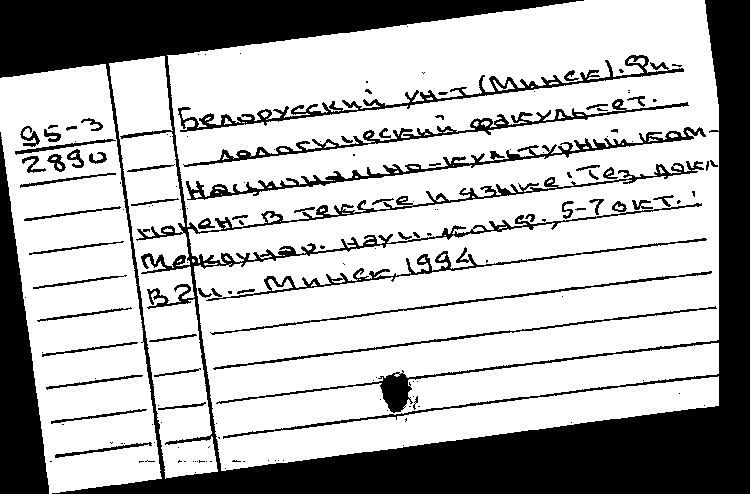 95-3
2890
Белорусский ун-т (Минск). Фи-
лологический факультет.
Национально-культурный ком-
понент в тексте и языке: Тез. докл.
Междунар. науч. конф., 5-7 окт.:
В 2 ч. - Минск, 1994.